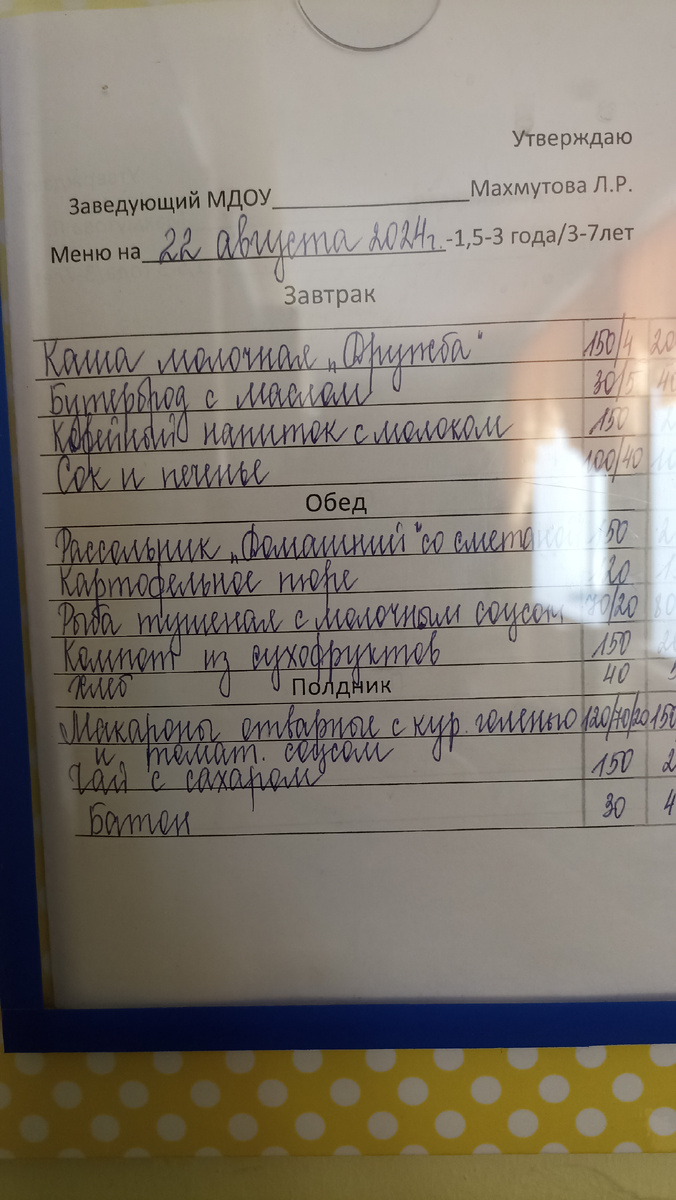 Утверждаю
Заведующий МДОУ Махмутова Л.Р.
Меню на 22 августа 2024г.-1,5-3 года/3-7лет
Завтрак
Каша молочная „Дружба" 150/4 20
Бутерброд с маслом 30/5 40
Кофейный напиток с молоком 150
Сок и печенье 100/40 10
Обед
Рассольник „Домашний" со сметаной 150
Картофельное пюре 120
Рыба тушеная с молочным соусом 70/20 80
Компот из сухофруктов 150 20
Хлеб 40
Полдник
Макароны отварные с кур. голенью 120/70/20 150
и томат. соусом
Чай с сахаром 150 2
Батон 30 4